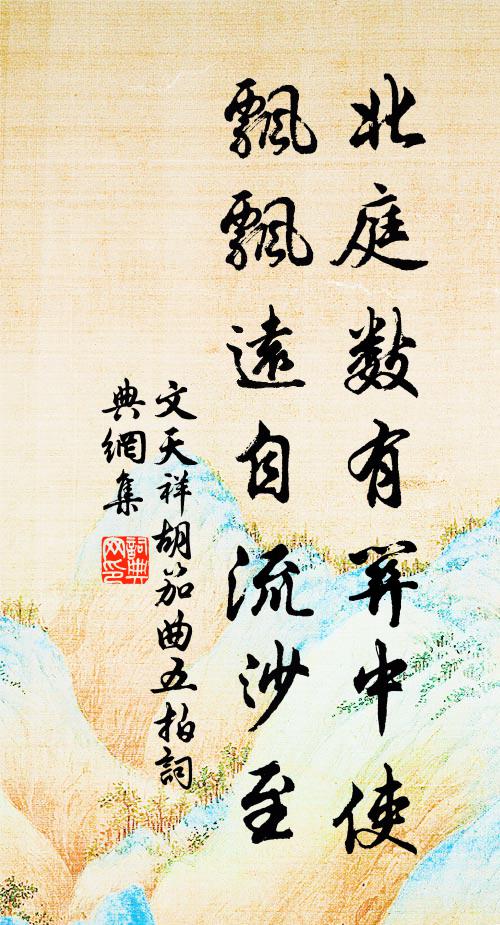 北庭数有關中使
飄飄遠自流沙至
文天祥胡笳曲五拍詞
典網集
詞典
网印